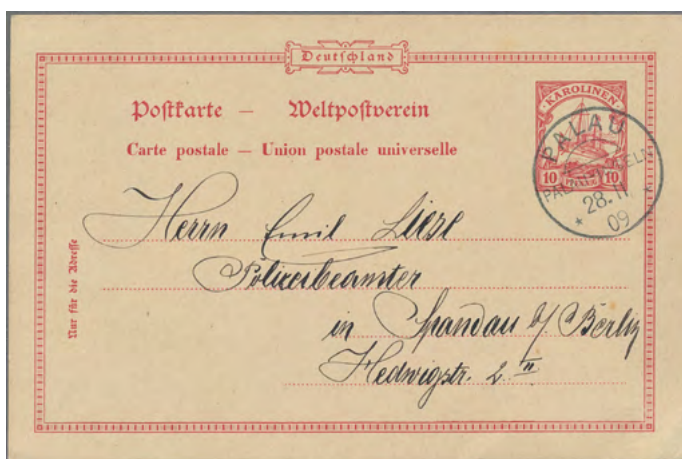 Deutschland
Postkarte — Weltpostverein
Carte postale — Union postale universelle
KAROLINEN
10 PFENNIG 10
PALAU
PALAU-INSELN
28.11
09
Nur für die Adresse
Herrn Emil Liese
Polizeibeamter
in Spandau b/ Berlin
Hedwigstr. 2 II